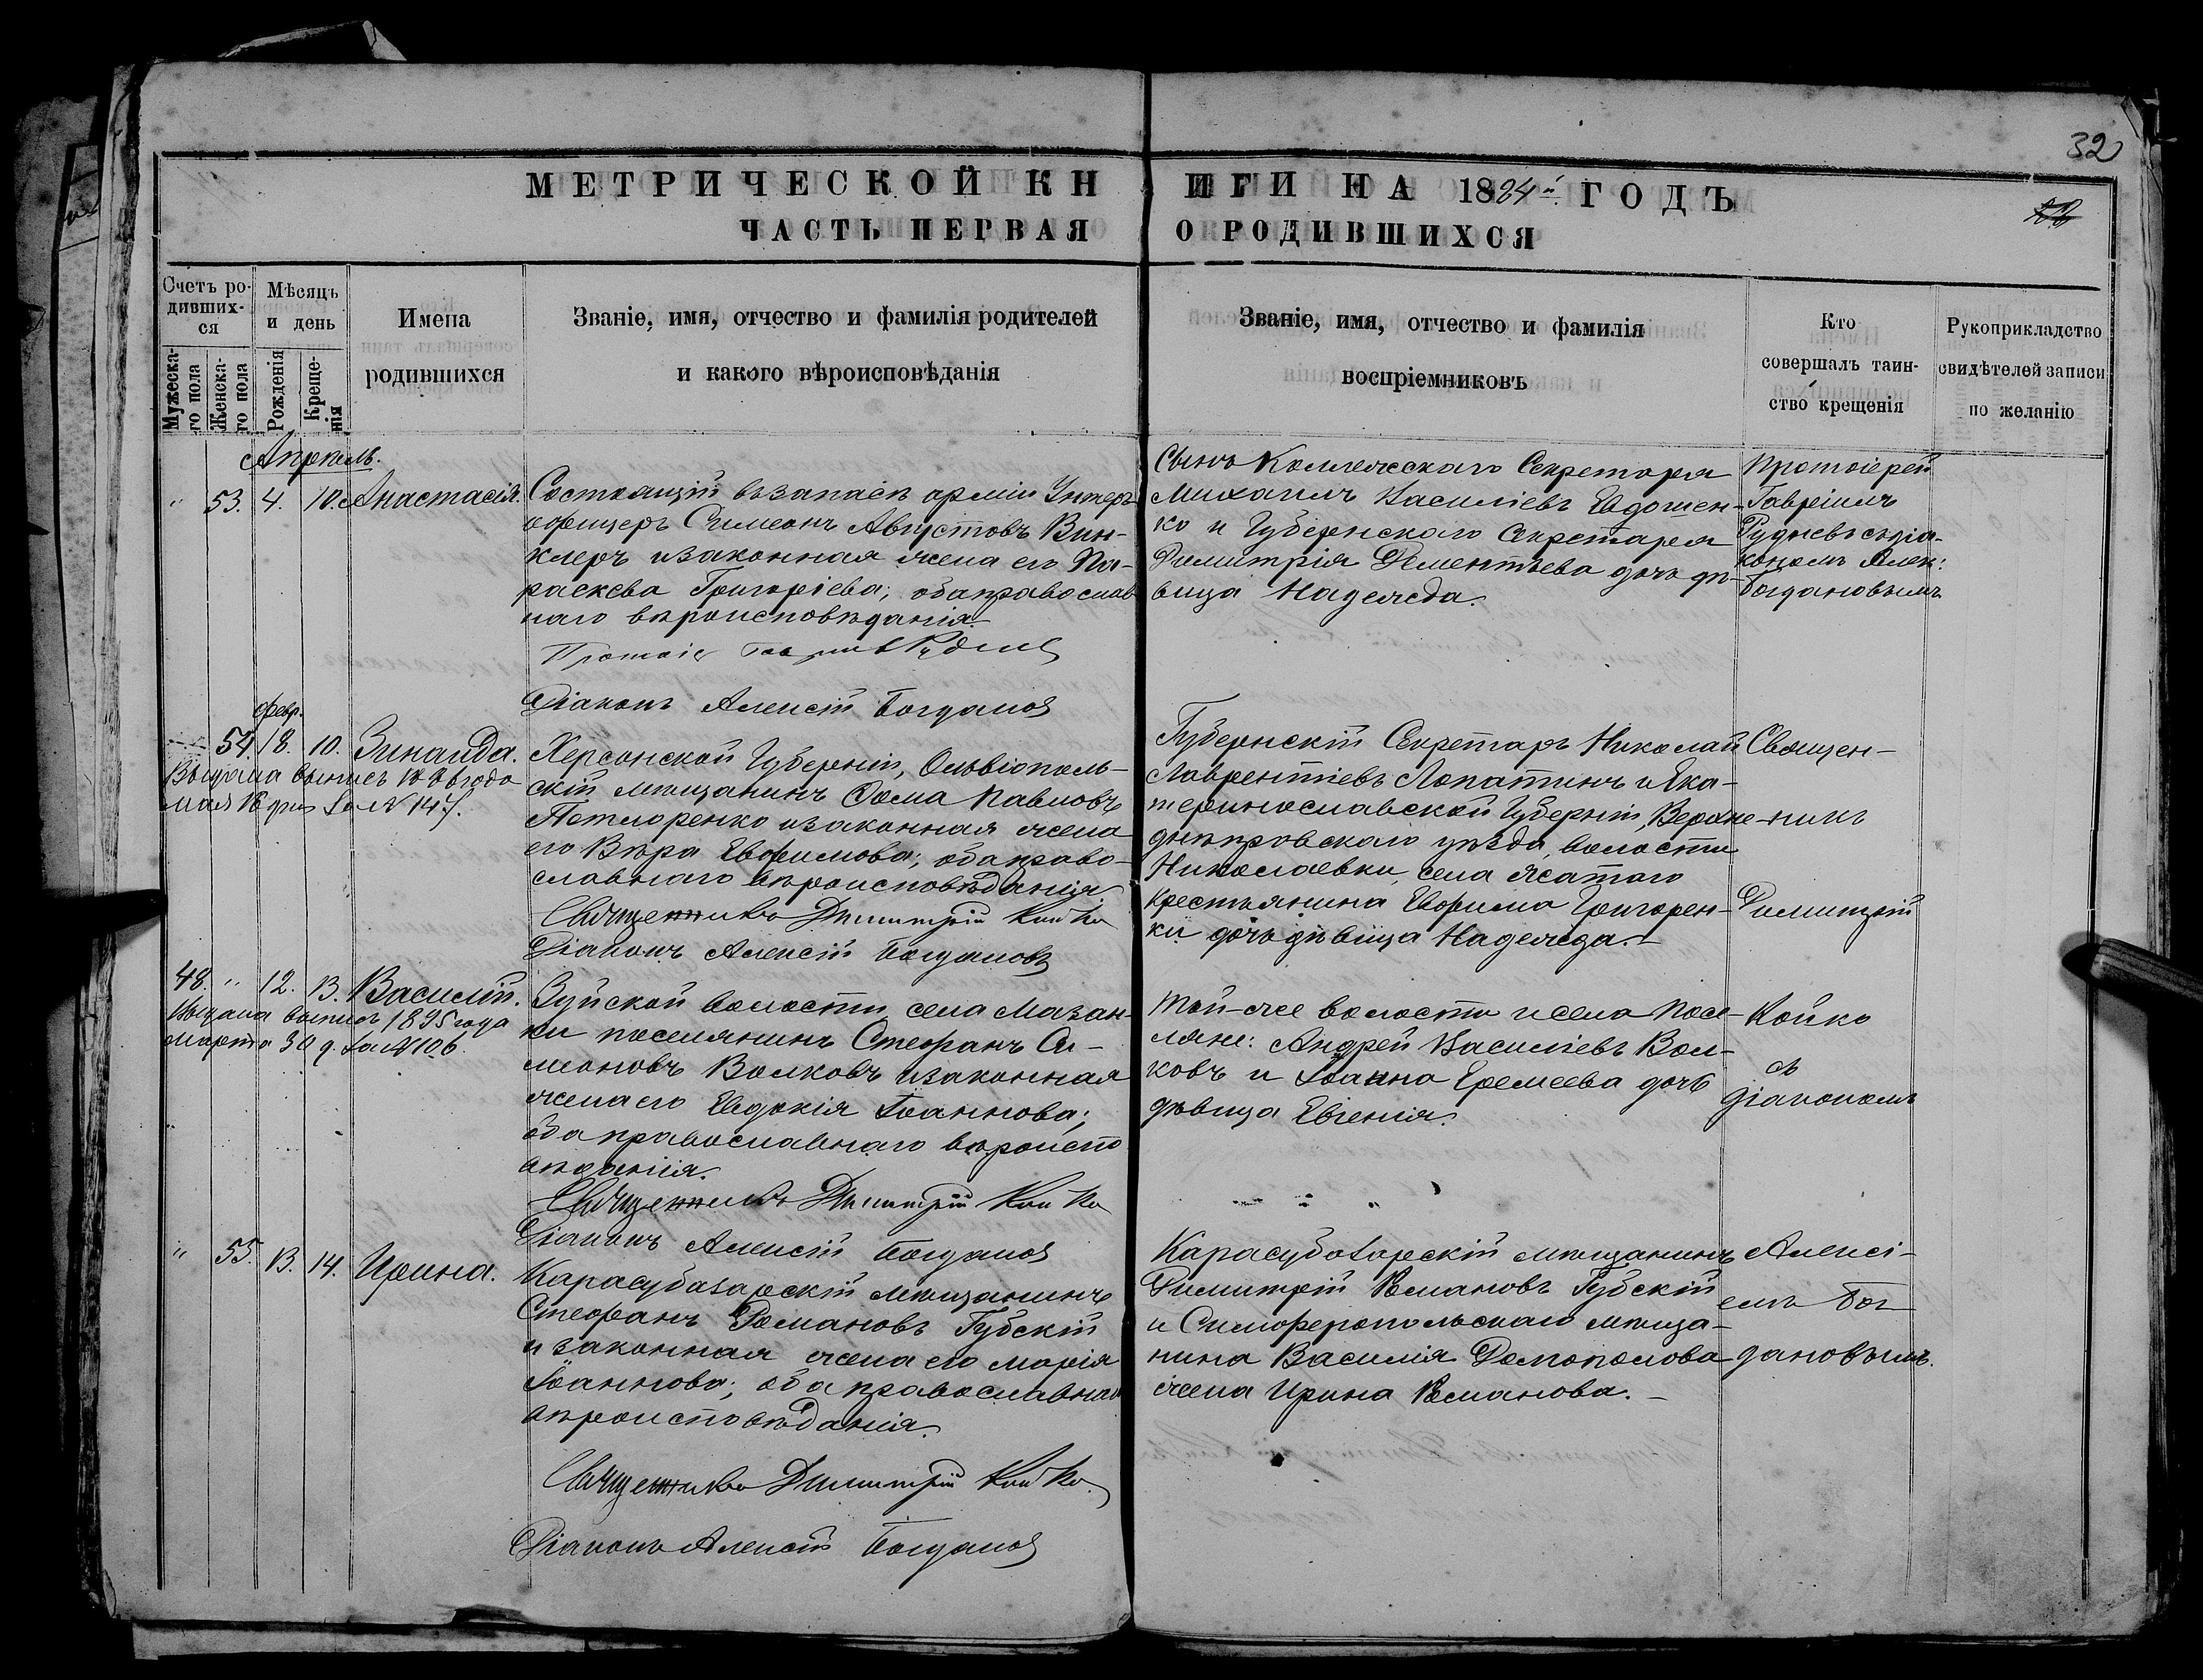 32
МЕТРИЧЕСКОЙ КНИГИ НА 1884й ГОДЪ
ЧАСТЬ ПЕРВАЯ О РОДИВШИХСЯ
Счетъ ро-
дивших-
ся
Мужеска-
го пола
Женска-
го пола
Мѣсяцъ
и день
Рожденія
Креще-
нія
Имена
родившихся
Званіе, имя, отчество и фамилія родителей
и какого вѣроисповѣданія
Званіе, имя, отчество и фамилія
воспріемниковъ
Кто
совершалъ таин-
ство крещенія
Рукоприкладство
свидѣтелей записи
по желанію
Апрель.
" 53. 4. 10. Анастасія.
Состоящій въ запасѣ арміи Унтеръ
офицеръ Симеонъ Августовъ Вин-
клеръ и законная жена его Па-
раскева Григоріева; оба православ
наго вѣроисповѣданія.
Протоіе Гавріилъ Руднев
Діаконъ Алексій Богданов
Сынъ Коллежскаго Секретаря
Михаилъ Василіевъ Евдошен-
ко и Губернскаго Секретаря
Димитрія Дементьева дочь дѣ-
вица Надежда.
Протоіерей
Гавріилъ
Рудневъ съ діа-
кономъ Алек:
Богдановымъ
Февр.
54. 18. 10. Зинаида.
Выдана выпись 18 года
мая 16 дня за № 147.
Херсонской Губерніи, Ольвіополь-
скій мѣщанинъ Фома Павловъ
Потлоренко и законная жена
его Вѣра Евфимова; оба право-
славнаго вѣроисповѣданія
Священникъ Димитрій Койко
Діаконъ Алексій Богдановъ
Губернскій Секретарь Николай
Лаврентіевъ Лопатинъ и Ека-
теринославской Губерніи, Верхне-
днѣпровскаго уѣзда, волости
Николаевки, села
крестьянина Евфима Григорен-
ки дочь дѣвица Надежда.
48. " 12. 13. Василій.
Выдана выпись 1895 года
марта 30 д. за № 106.
Зуйской волости села Мазан-
ки поселянинъ Стефанъ Си-
меоновъ Волковъ и законная
жена его Евдокія Іоаннова;
оба православнаго вѣроиспо
вѣданія.
Священникъ Димитрій Койко
Діаконъ Алексій Богданов
Той-же волости и села посе-
ляне: Андрей Василіевъ Вол-
ковъ и Іоанна Еремеева дочь
дѣвица Евгенія.
" 55. 13. 14. Ирина.
Карасубазарскій мѣщанинъ
Стефанъ Романовъ Губскій
и законная жена его Марія
Іоаннова; оба православнаго
вѣроисповѣданія.
Священникъ Димитрій Койко.
Діаконъ Алексій Богданов
Карасубазарскій мѣщанинъ
Димитрій Романовъ Губскій
и Симферопольскаго мѣща-
нина Василія Домополова
жена Ирина Романова.
Священ-
никъ
Димитрій
Койко
съ
діакономъ
Алексі-
емъ Бог
дановымъ.